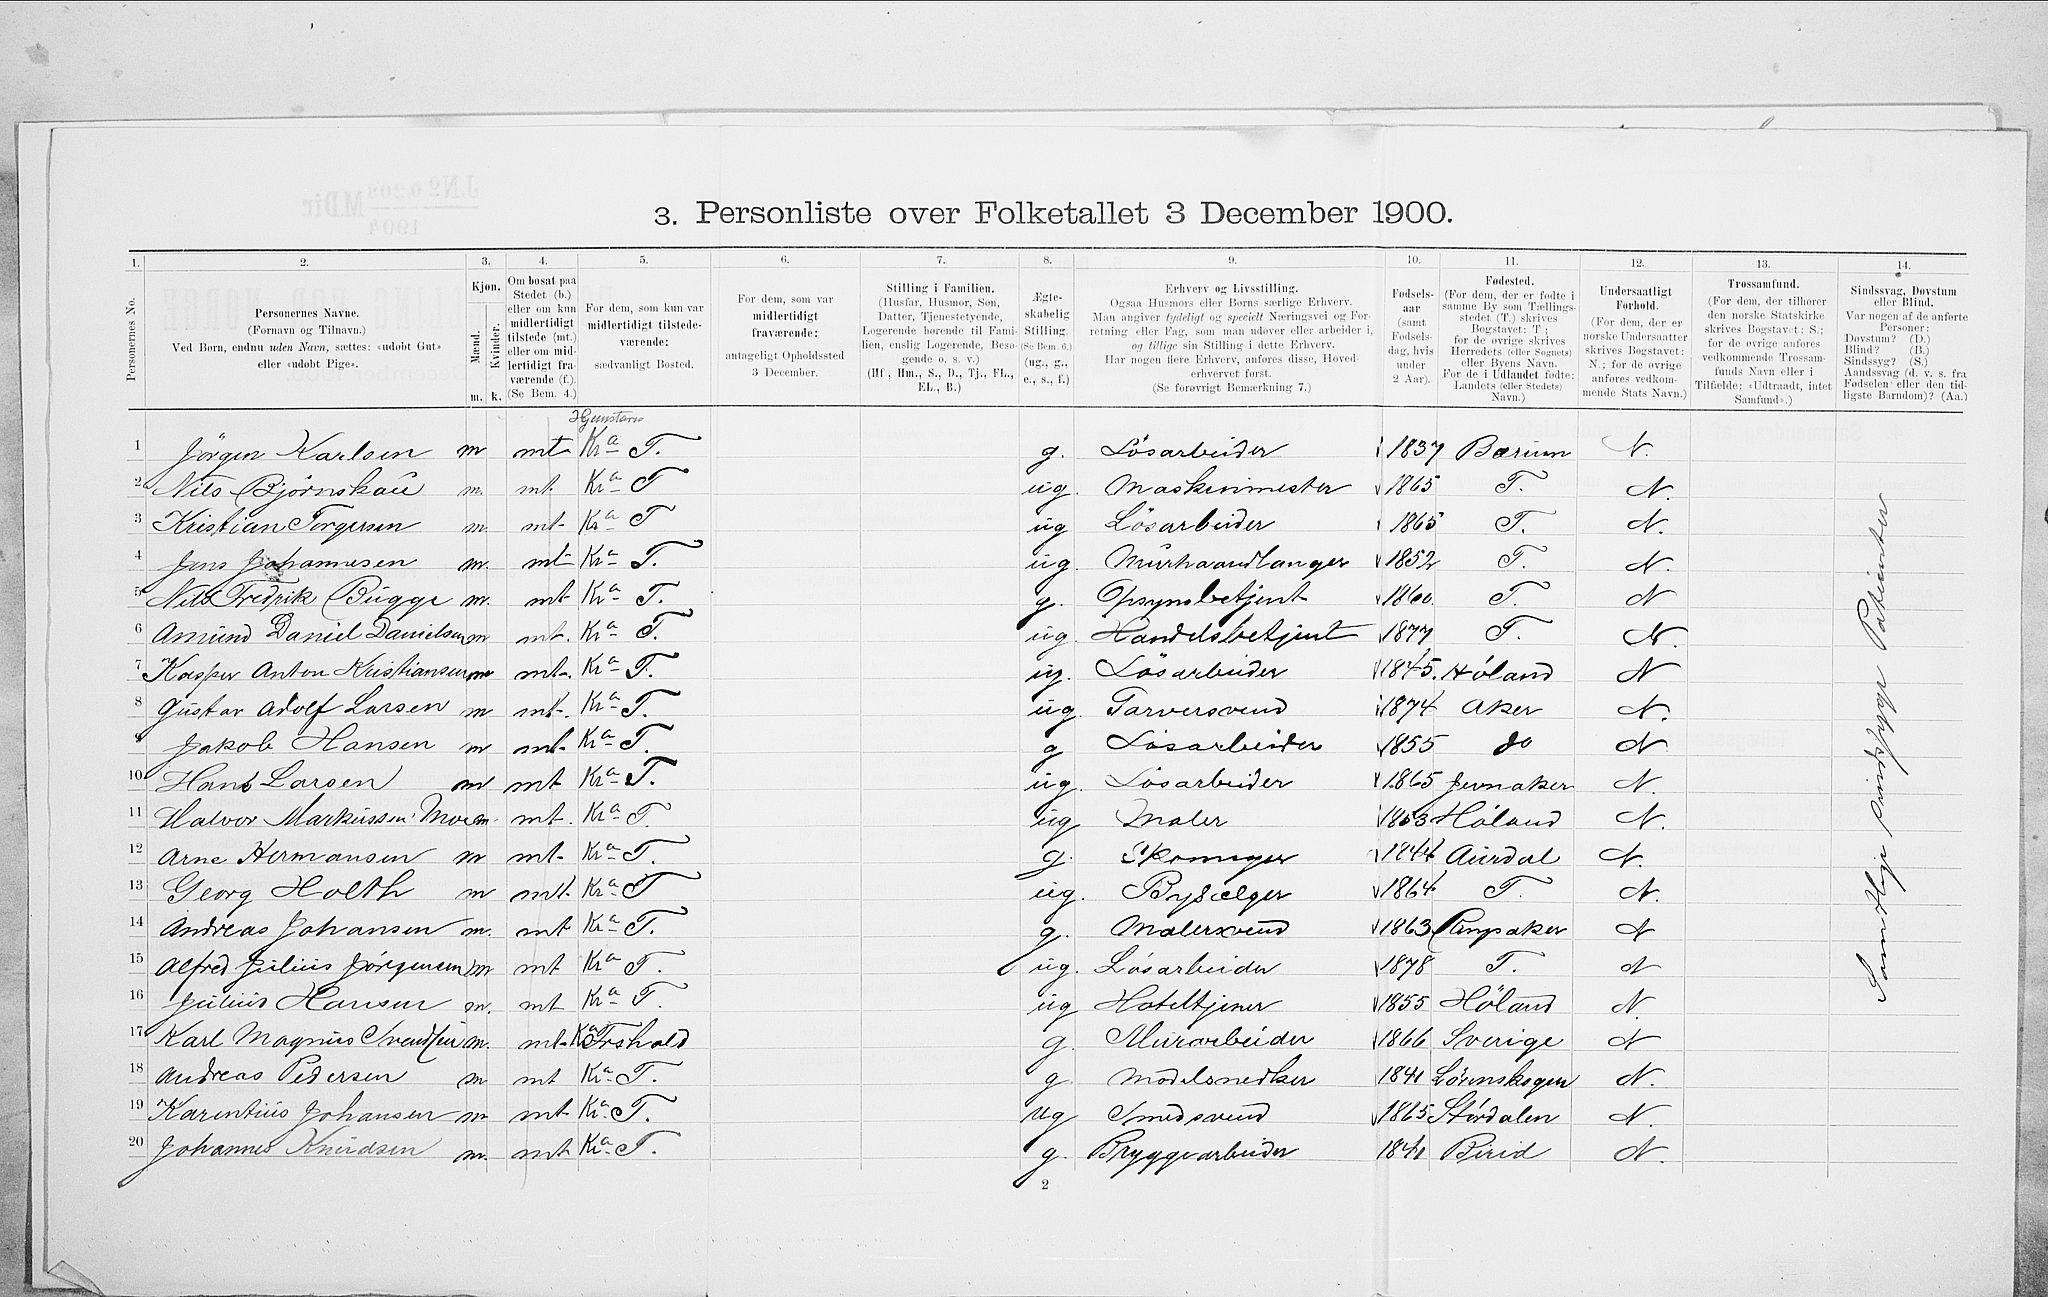 3. Personliste over Folketallet 3 December 1900.
1. 2. 3. 4. 5. 6. 7. 8. 9. 10. 11. 12. 13. 14.
Personernes No.
Personernes Navne.
(Fornavn og Tilnavn.)
Ved Børn, endnu uden Navn, sættes: «udøbt Gut»
eller «udøbt Pige».
Kjøn.
Mænd. Kvinder.
m. k.
Om bosat paa
Stedet (b.)
eller om kun
midlertidigt
tilstede (mt.)
eller om mid-
lertidigt fra-
værende (f.)
(Se Bem. 4.)
For dem, som kun var
midlertidigt tilstede-
værende:
sædvanligt Bosted.
For dem, som var
midlertidigt
fraværende:
antageligt Opholdssted
3 December.
Stilling i Familien.
(Husfar, Husmor, Søn,
Datter, Tjenestetyende,
Logerende hørende til Fami-
lien, enslig Logerende, Besø-
gende o. s. v.)
(Hf, Hm., S., D., Tj., FL.,
EL., B.)
Ægte-
skabelig
Stilling.
(Se Bem. 6.)
(ug., g.,
e., s., f.)
Erhverv og Livsstilling.
Ogsaa Husmors eller Børns særlige Erhverv.
Man angiver tydeligt og specielt Næringsvei og For-
retning eller Fag, som man udøver eller arbeider i,
og tillige sin Stilling i dette Erhverv.
Har nogen flere Erhverv, anføres disse, Hoved-
erhvervet først.
(Se forøvrigt Bemærkning 7.)
Fødsels-
aar
(samt
Fødsels-
dag, hvis
under
2 Aar).
Fødested.
(For dem, der er fødte i
samme By som Tællings-
stedet (T.) skrives
Bogstavet: T;
for de øvrige skrives
Herredets (eller Sognets)
eller Byens Navn.
For de i Udlandet fødte:
Landets (eller Stedets)
Navn.)
Undersaatligt
Forhold.
(For dem, der er
norske Undersaatter
skrives Bogstavet:
N.; for de øvrige
anføres vedkom-
mende Stats Navn.)
Trossamfund.
(For dem, der tilhører
den norske Statskirke
skrives Bogstavet: S.;
for de øvrige anføres
vedkommende Trossam-
funds Navn eller i
Tilfælde: «Udtraadt, intet
Samfund».)
Sindssvag, Døvstum
eller Blind.
Var nogen af de anførte
Personer:
Døvstum? (D.)
Blind? (B.)
Sindssyg? (S.)
Aandssvag (d. v. s. fra
Fødselen eller den tid-
ligste Barndom)? (Aa.)
1 Jörgen Karlsen m mt Kra T. g. Lösarbeider 1837 Bærum N.
2 Nils Björnskau m. mt. Kra T ug. Maskinmester 1865 T. N.
3 Kristian Torgersen m. mt Kra T ug Lösarbeider 1865 T. N.
4 Jens Johannesen m. mt Kra T. ug. Murhaandlanger 1852 T. N.
5 Nils Fredrik Bugge m. mt Kra T. g. Opsynsbetjent 1860. T. N
6 Amund Daniel Danielsen m mt. Kra T. ug. Handelsbetjent 1877 T. N.
7 Kasper Anton Kristiansen m mt. Kra T. ug. Lösarbeider 1845. Höland N
8 Gustav Adolf Larsen m mt. Kra T. ug. Farversvend 1874 Aker N.
9 Jakob Hansen m mt Kra T. g Lösarbeider 1855 do N
10 Hans Larsen m mt Kra T. ug. Lösarbeider 1865 Jevnaker N.
11 Halvor Markussen Moe m. mt. Kra T. ug Maler 1853 Höland N.
12 Arne Hermansen m mt Kra T. g. Skomager 1844 Aurdal N.
13 Georg Holth m mt. Kra T ug. Bysælger 1864 T. N.
14 Andreas Johansen m. mt Kra T. g. Malersvend 1863 Ringsaker N
15 Alfred Julius Jörgensen m mt Kra T. ug. Lösarbeider 1878 T. N
16 Julius Hansen m. mt Kra T. ug Hoteltjener 1855 Höland N.
17 Karl Magnus Svendsen m. mt Kra g. Murarbeider 1866 Sverige N
18 Andreas Pedersen m mt Kra T. g. Modelsnedker 1841 Lörenskogen N.
19 Karentius Johansen m mt Kra T. ug Smedsvend 1865 Stördalen N.
20 Johannes Knudsen m. mt Kra T. g. Bryggearbeider 1841 Birid N.
Samtlige sindssyge Patienter
2